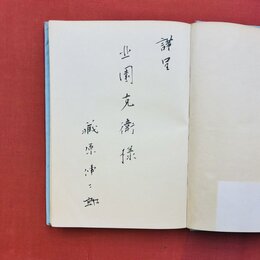 謹呈
北園克衛様
蔵原伸二郎